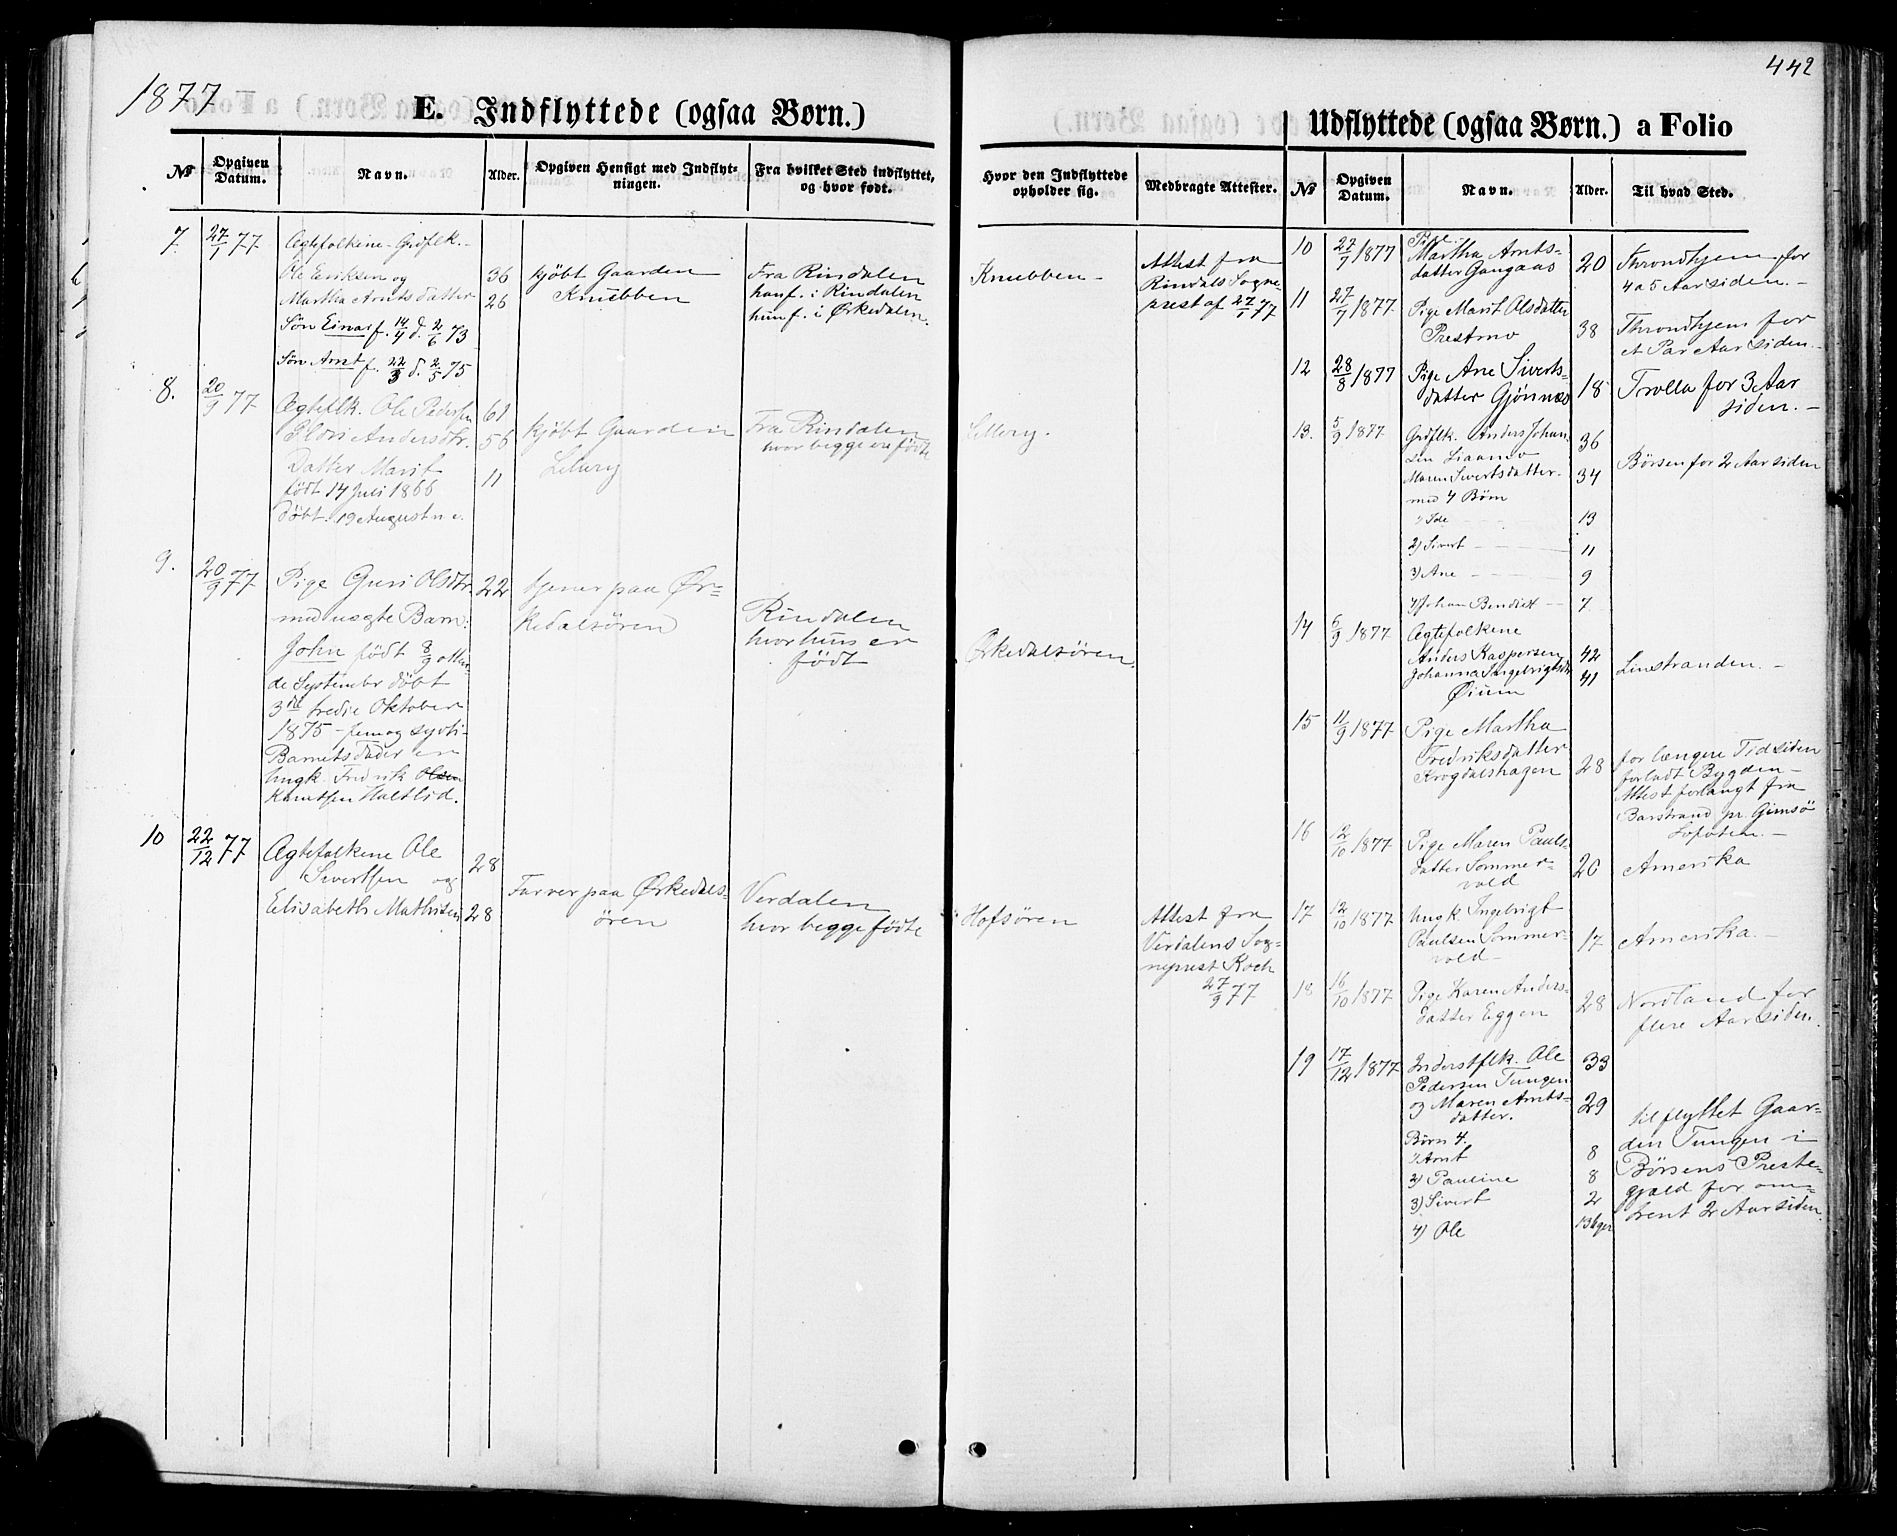 442
1877
E. Indflyttede (ogsaa Børn.)
№
Opgiven Datum.
Navn.
Alder.
Opgiven Hensigt med Indflyt-
ningen.
Fra hvilket Sted indflyttet,
og hvor født.
7.
27/1 77
Ægtefolkene Grdflk.
Ole Eriksen og
Martha Arntsdatter
Søn Einar f. 14/4 d. 2/6 73
Søn Arnt f. 22/3 d. 2/5 75
36
26
kjöbt Gaarden
Knubben
Fra Rindalen
han f. i Rindalen
hun f. i Ørkedalen.
8.
20/9 77
Ægteflk. Ole Pedersen
Ildri Andersdtr.
Datter Marit
født 14 Juli 1866
døbt 19 August n.
61
56
11
kjöbt Gaarden
Fra Rindalen
hvor begge ere födte
9.
20/9 77
Pige Guri Olsdtr
med uægte Barn:
John födt 8/9 otten-
de September döbt
3die tredie Oktober
1875 - fem og sytti-
Barnets Fader er
Ungk. Fredrik Olsen
Knutsen Holtlid.
22
tjener paa Ør-
kedalsören
Rindalen
hvor hun er
født
10
22/12 77
Ægtefolkene Ole
Sivertsen og
Elisabeth Mathisen
28
28
Farver paa Ørkedals-
ören
Verdalen
hvor begge födte
Hvor den Indflyttede
opholder sig.
Medbragte Attester.
Knubben -
Attest fra
Rindals Sogne-
prest af 27/1 77
Ørkedalsören.
Hofsören
Attest fra
Verdalens Sog-
neprest Koch
27/9 77
Udflyttede (ogsaa Børn.) a Folio
№
Opgiven
Datum.
Navn.
Alder.
Til hvad Sted.
10
27/7 1877
Pige
Martha Arnts-
datter Gangaas
20
Throndhjem for
4 a 5 Aar siden. -
11
27/7 1877
Pige Marit Olsdatter
Prestmo
38
Throndhjem for
et Par Aar siden. -
12
28/8 1877
Pige Ane Siverts-
datter Gjönnæs
18
Trolla for 3 Aar
siden. -
13.
5/9 1877
Grdflk. Anders Johan-
sen Liaamo
Maren Sivertsdatter
med 4 Börn
1) Ide
2) Sivert
3) Ane
4) Johan Bendikt
36
34
13
11
9
7
Börsen for 2 Aar siden
14
6/9 1877
Ægtefolkene
Anders Kaspersen
Johanna Ingebrigtsdtr
Øium
42
41
Linstranden. -
15
11/9 1877
Pige Martha
Fredriksdatter
Krogdalshagen
28
for længere Tid siden
forladt Bygden -
Attest forlangt fra
Barstrand pr. Gimsö
Lofoten. -
16
12/10 1877
Pige Maren Pauls-
datter Sommer-
vold
20
Amerika
17
12/10 1877
Ungk Ingebrigt
Paulsen Sommer-
vold -
17
Amerika. -
18
16/10 1877
Pige Karen Anders-
datter Eggen
28
Nordland for
flere Aar siden.
19
17/12 1877
Inderstflk. Ole
Pedersen Tungen
og Maren Arnts-
datter.
Börn 4.
1) Arnt
2) Pauline
3) Sivert
4) Ole
33
29
8
8
2
13 Uger
tilflyttet Gaar-
den Tungen i
Börsens Preste-
gjæld for om-
trent 2 Aar siden.